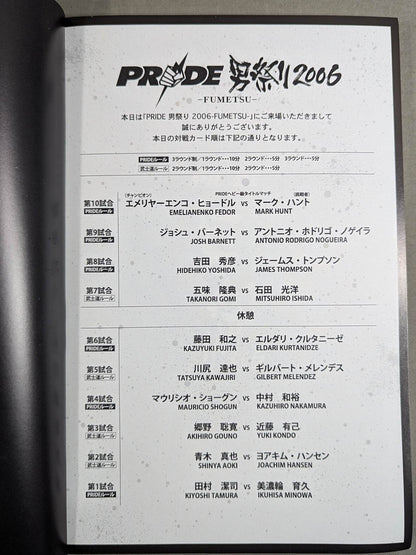 PRIDE 男祭り 2006
−FUMETSU−
本日は「PRIDE 男祭り 2006-FUMETSU-」にご来場いただきまして
誠にありがとうございます。
本日の対戦カード順は下記の通りとなります。
PRIDEルール 3ラウンド制/1ラウンド・・・10分 2ラウンド・・・5分 3ラウンド・・・5分
武士道ルール 2ラウンド制/1ラウンド・・・10分 2ラウンド・・・5分
PRIDEヘビー級タイトルマッチ
(チャンピオン) (挑戦者)
第10試合 エメリヤーエンコ・ヒョードル vs マーク・ハント
PRIDEルール EMELIANENKO FEDOR MARK HUNT
第9試合 ジョシュ・バーネット vs アントニオ・ホドリゴ・ノゲイラ
PRIDEルール JOSH BARNETT ANTONIO RODRIGO NOGUEIRA
第8試合 吉田 秀彦 vs ジェームス・トンプソン
PRIDEルール HIDEHIKO YOSHIDA JAMES THOMPSON
第7試合 五味 隆典 vs 石田 光洋
武士道ルール TAKANORI GOMI MITSUHIRO ISHIDA
休憩
第6試合 藤田 和之 vs エルダリ・クルタニーゼ
PRIDEルール KAZUYUKI FUJITA ELDARI KURTANIDZE
第5試合 川尻 達也 vs ギルバート・メレンデス
武士道ルール TATSUYA KAWAJIRI GILBERT MELENDEZ
第4試合 マウリシオ・ショーグン vs 中村 和裕
PRIDEルール MAURICIO SHOGUN KAZUHIRO NAKAMURA
第3試合 郷野 聡寛 vs 近藤 有己
武士道ルール AKIHIRO GOUNO YUKI KONDO
第2試合 青木 真也 vs ヨアキム・ハンセン
武士道ルール SHINYA AOKI JOACHIM HANSEN
第1試合 田村 潔司 vs 美濃輪 育久
PRIDEルール KIYOSHI TAMURA IKUHISA MINOWA